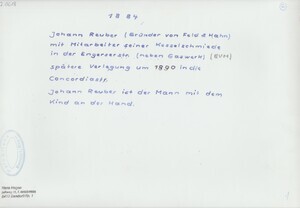 1884
Johann Reuber (Gründer von Feld & Hahn)
mit Mitarbeiter seiner Kesselschmiede
in der Engerserstr. (neben Gaswerk) (EVM)
spätere Verlegung um 1890 in die
Concordiastr.
Johann Reuber ist der Mann mit dem
Kind an der Hand.